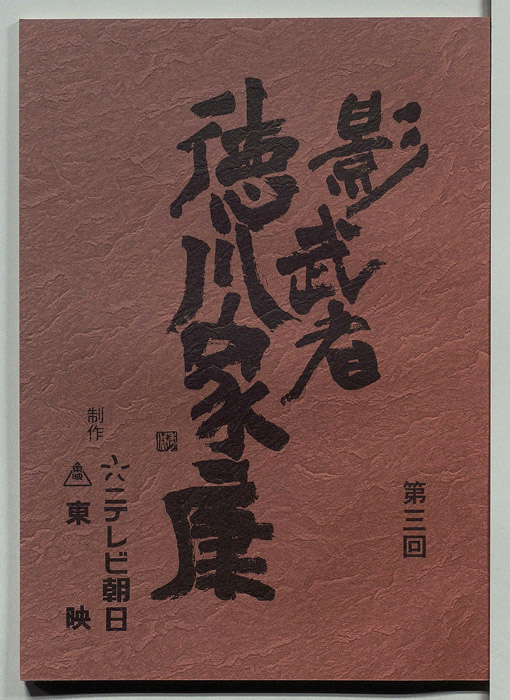 影武者
徳川家康
第三回
制作
テレビ朝日
東映